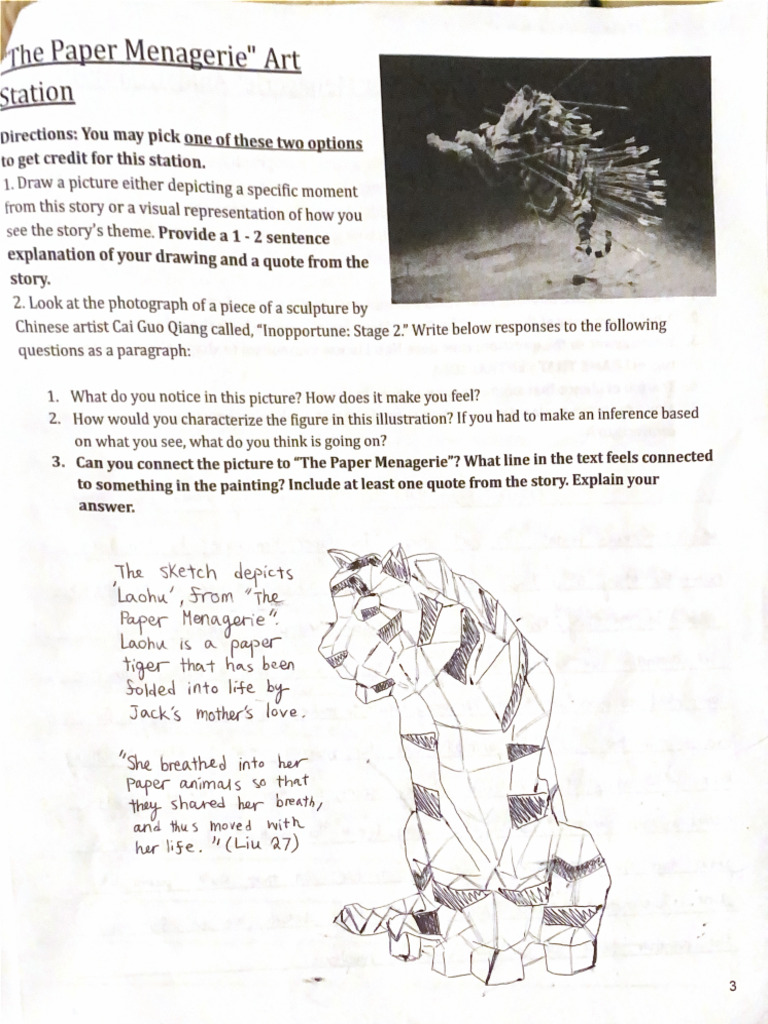 "The Paper Menagerie" Art
Station
Directions: You may pick one of these two options
to get credit for this station.
1. Draw a picture either depicting a specific moment
from this story or a visual representation of how you
see the story's theme. Provide a 1 - 2 sentence
explanation of your drawing and a quote from the
story.
2. Look at the photograph of a piece of a sculpture by
Chinese artist Cai Guo Qiang called, "Inopportune: Stage 2." Write below responses to the following
questions as a paragraph:
1. What do you notice in this picture? How does it make you feel?
2. How would you characterize the figure in this illustration? If you had to make an inference based
on what you see, what do you think is going on?
3. Can you connect the picture to "The Paper Menagerie"? What line in the text feels connected
to something in the painting? Include at least one quote from the story. Explain your
answer.
The sketch depicts
'Laohu', from "The
Paper Menagerie".
Laohu is a paper
tiger that has been
folded into life by
Jack's mother's love.
"She breathed into her
paper animals so that
they shared her breath,
and thus moved with
her life." (Liu 27)
3